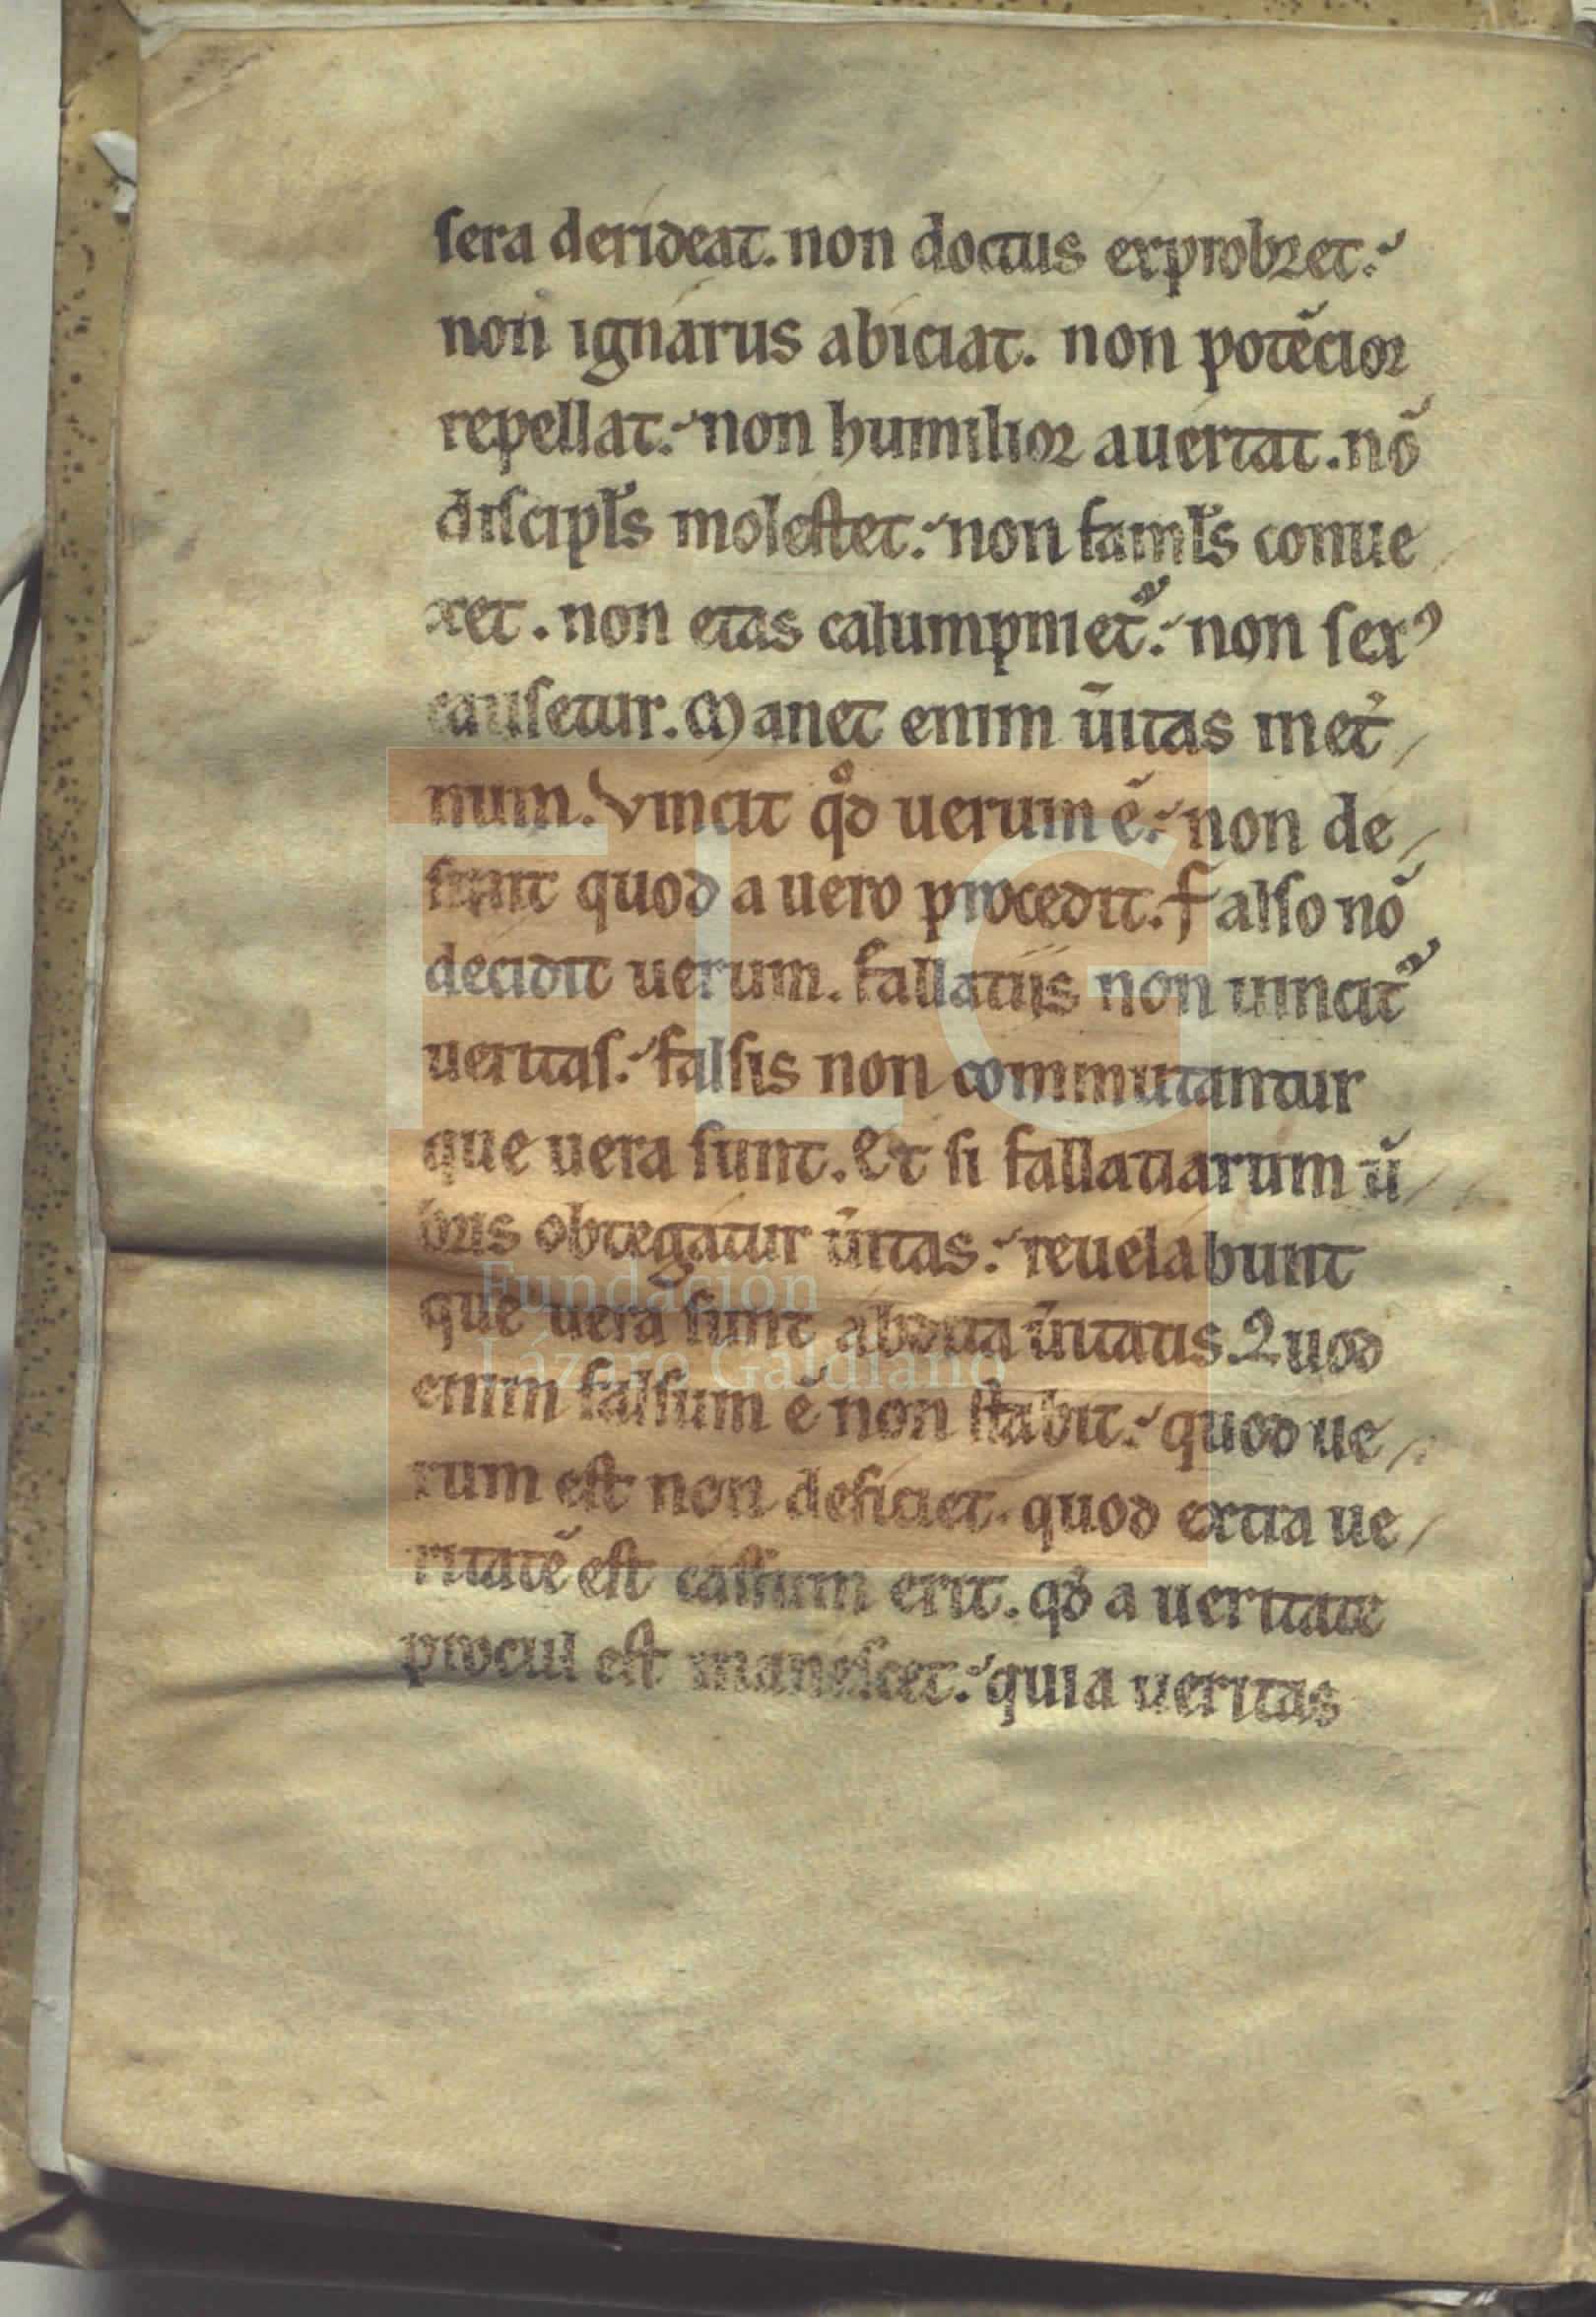 sera derideat. non doctus exprobret.
non ignarus abiciat. non potẽcior
repellat. non humilior auertat. nõ
discipl̃s molestet. non faml̃s conue
xet. non etas calumpniet᷑. non sexꝰ
causetur. Manet enim ũitas met̃
num. Vincit qd̊ uerum ẽ. non de
sinit quod a uero procedit. Falso nõ
decidit uerum. fallatiis non uincit᷑
ueritas. falsis non commutantur
que uera sunt. Et si fallatiarum ũ
bris obtegatur ũitas. reuelabunt
que uera sunt abdita ũitatis. Quod
enim falsum ẽ non stabit. quod ue
rum est non deficiet. quod extra ue
ritatẽ est cassum erit. qd̃ a ueritate
procul est manescet. quia ueritas
FLG
Fundación
Lázaro Galdiano